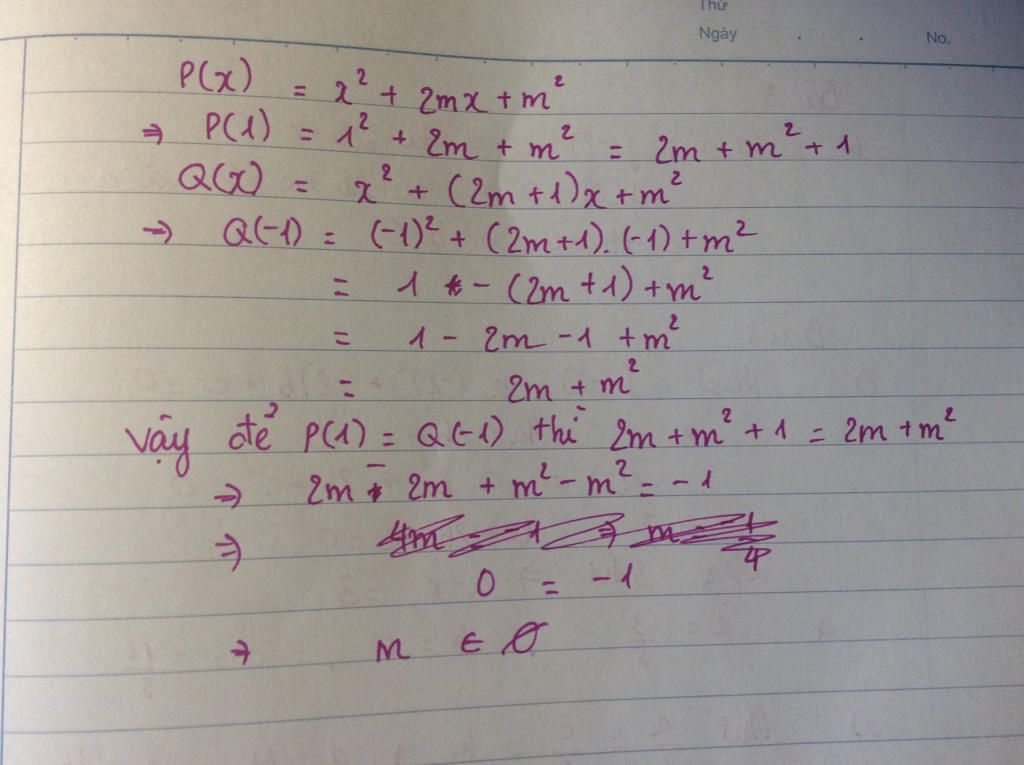 Thứ
Ngày . . No.
P(x) = x² + 2mx + m²
⇒ P(1) = 1² + 2m + m² = 2m + m² + 1
Q(x) = x² + (2m+1)x + m²
→ Q(-1) = (-1)² + (2m+1).(-1) + m²
= 1 - (2m+1) + m²
= 1 - 2m - 1 + m²
= 2m + m²
Vậy để P(1) = Q(-1) thì 2m + m² + 1 = 2m + m²
⇒ 2m - 2m + m² - m² = -1
⇒
0 = -1
⇒ m ∈ ∅